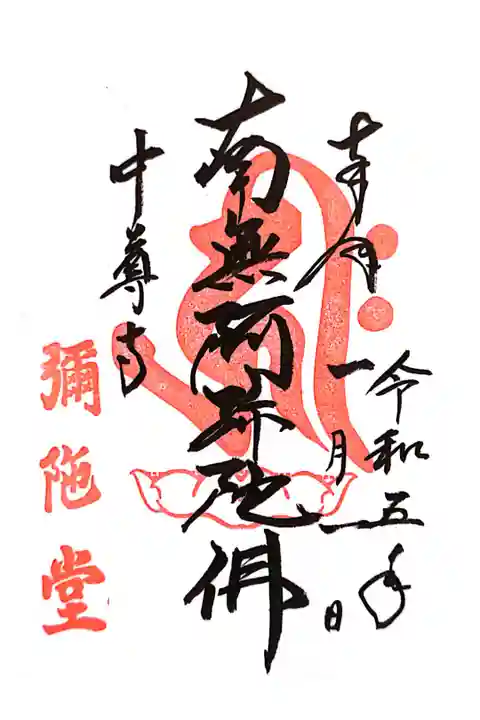 奉拝
令和五年
一月一日
南無阿弥陀佛
中尊寺
彌陀堂